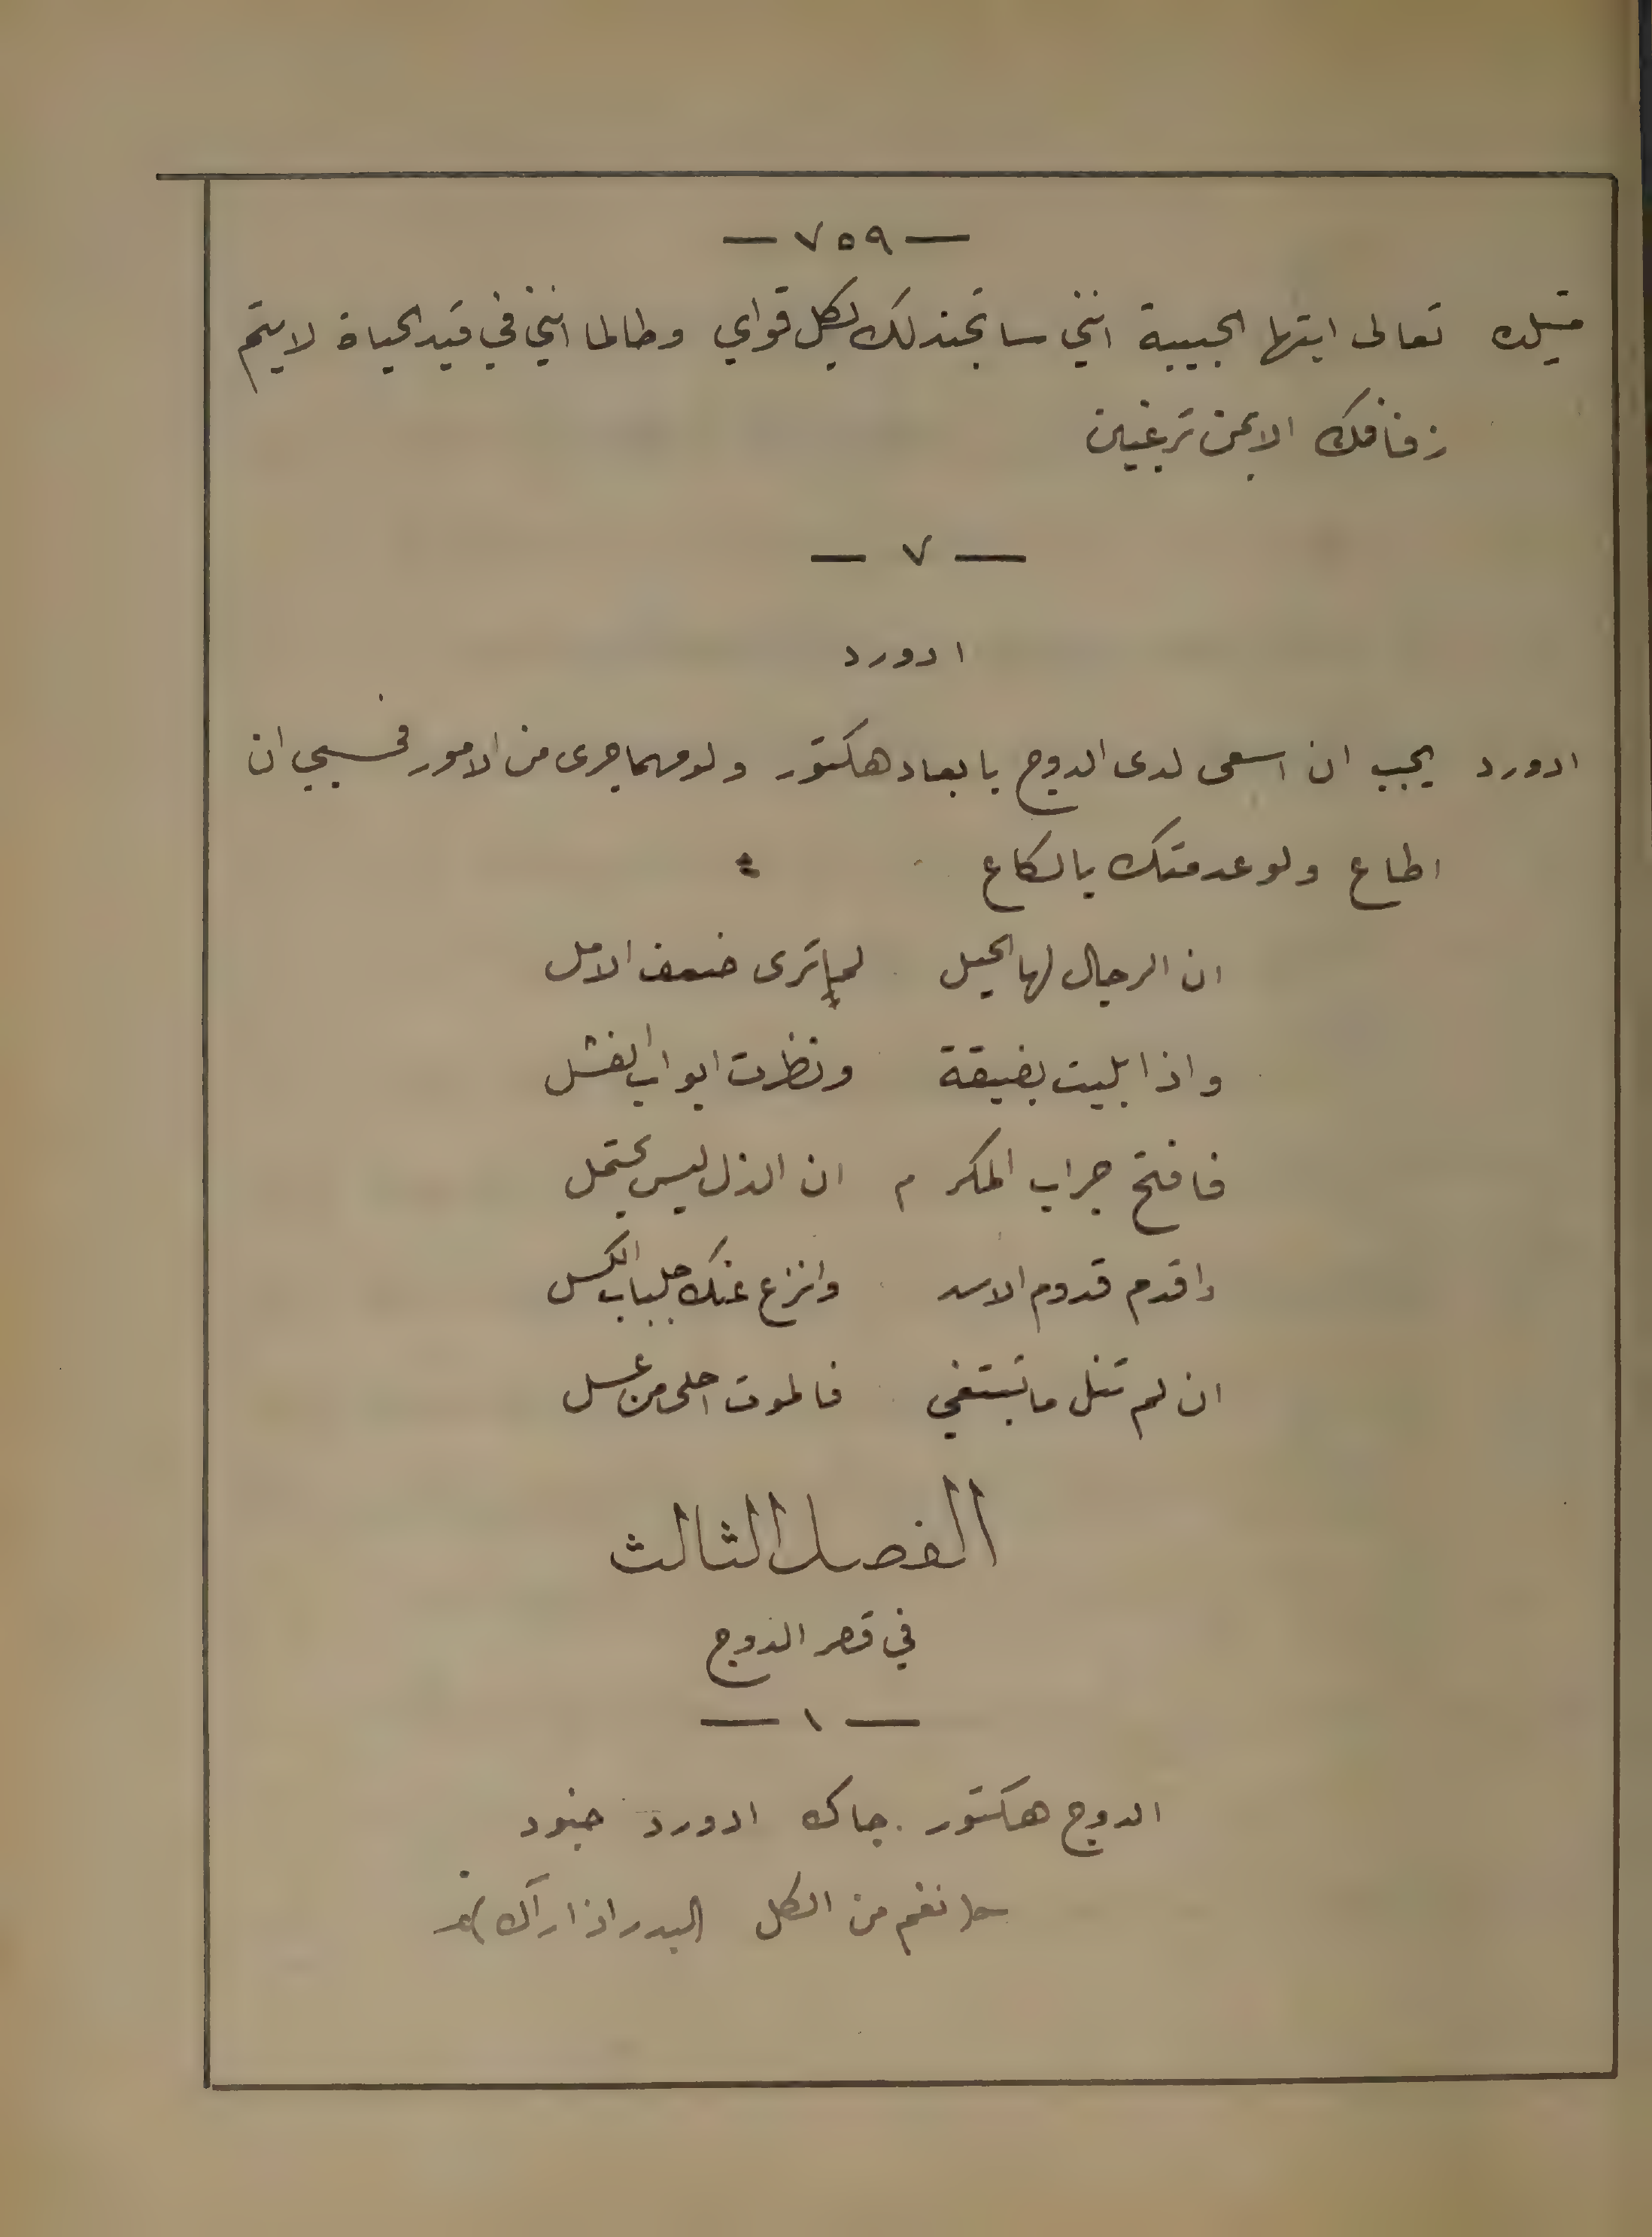 — ٧٥٩ —
تعالى ايتها الحبيبة انني ساتجند لك بكل قواي وطالما انني في قيد الحياة لايتم
زفافك الابمن ترغبين
— ٧ —
ادورد
ادورد يجب ان اسعى لدى الدوج بابعاد هكتور ولومهما جرى من الامور فحسبي ان
اطاع ولو عدمتك يالكاع
ان الرجال لها الحيل لما ترى ضعف الامل
واذا بليت بضيقة ونظرت ابواب الفشل
فافتح جراب المكر م ان الذل ليس يحتمل
واقدم قدوم الاسد وانزع عنك جلباب الكسل
ان لم تنل ماتبتغي فالموت احلى من عسل
الفصل الثالث
في قصر الدوج
— ١ —
الدوج هكتور. جاك ادورد جنود
(نغم من الكل (البدر اذا رآك)